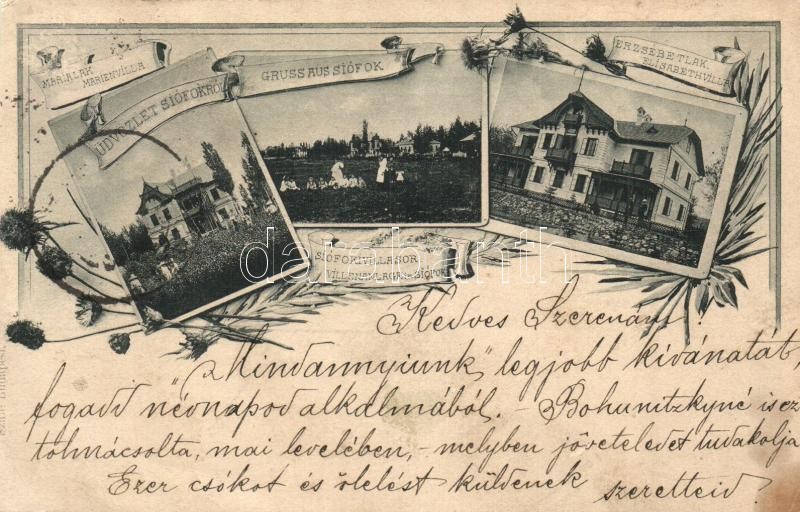 MÁRIALAK
MARIENVILLA
ÜDVÖZLET SIÓFOKRÓL
GRUSS AUS SIÓFOK.
ERZSÉBETLAK.
ELISABETHVILLA
darabanth
SIÓFOKI VILLASOR
VILLENANLAGE SIÓFOK
Kedves Szerenám!
"Mindannyiunk" legjobb kivánatát,
fogadd névnapod alkalmából. – Bohunitzkyné is ez
tolmácsolta, mai levelében, – melyben jöveteledet tudakolja
Ezer csókot és ölelést küldenek
szeretteid!